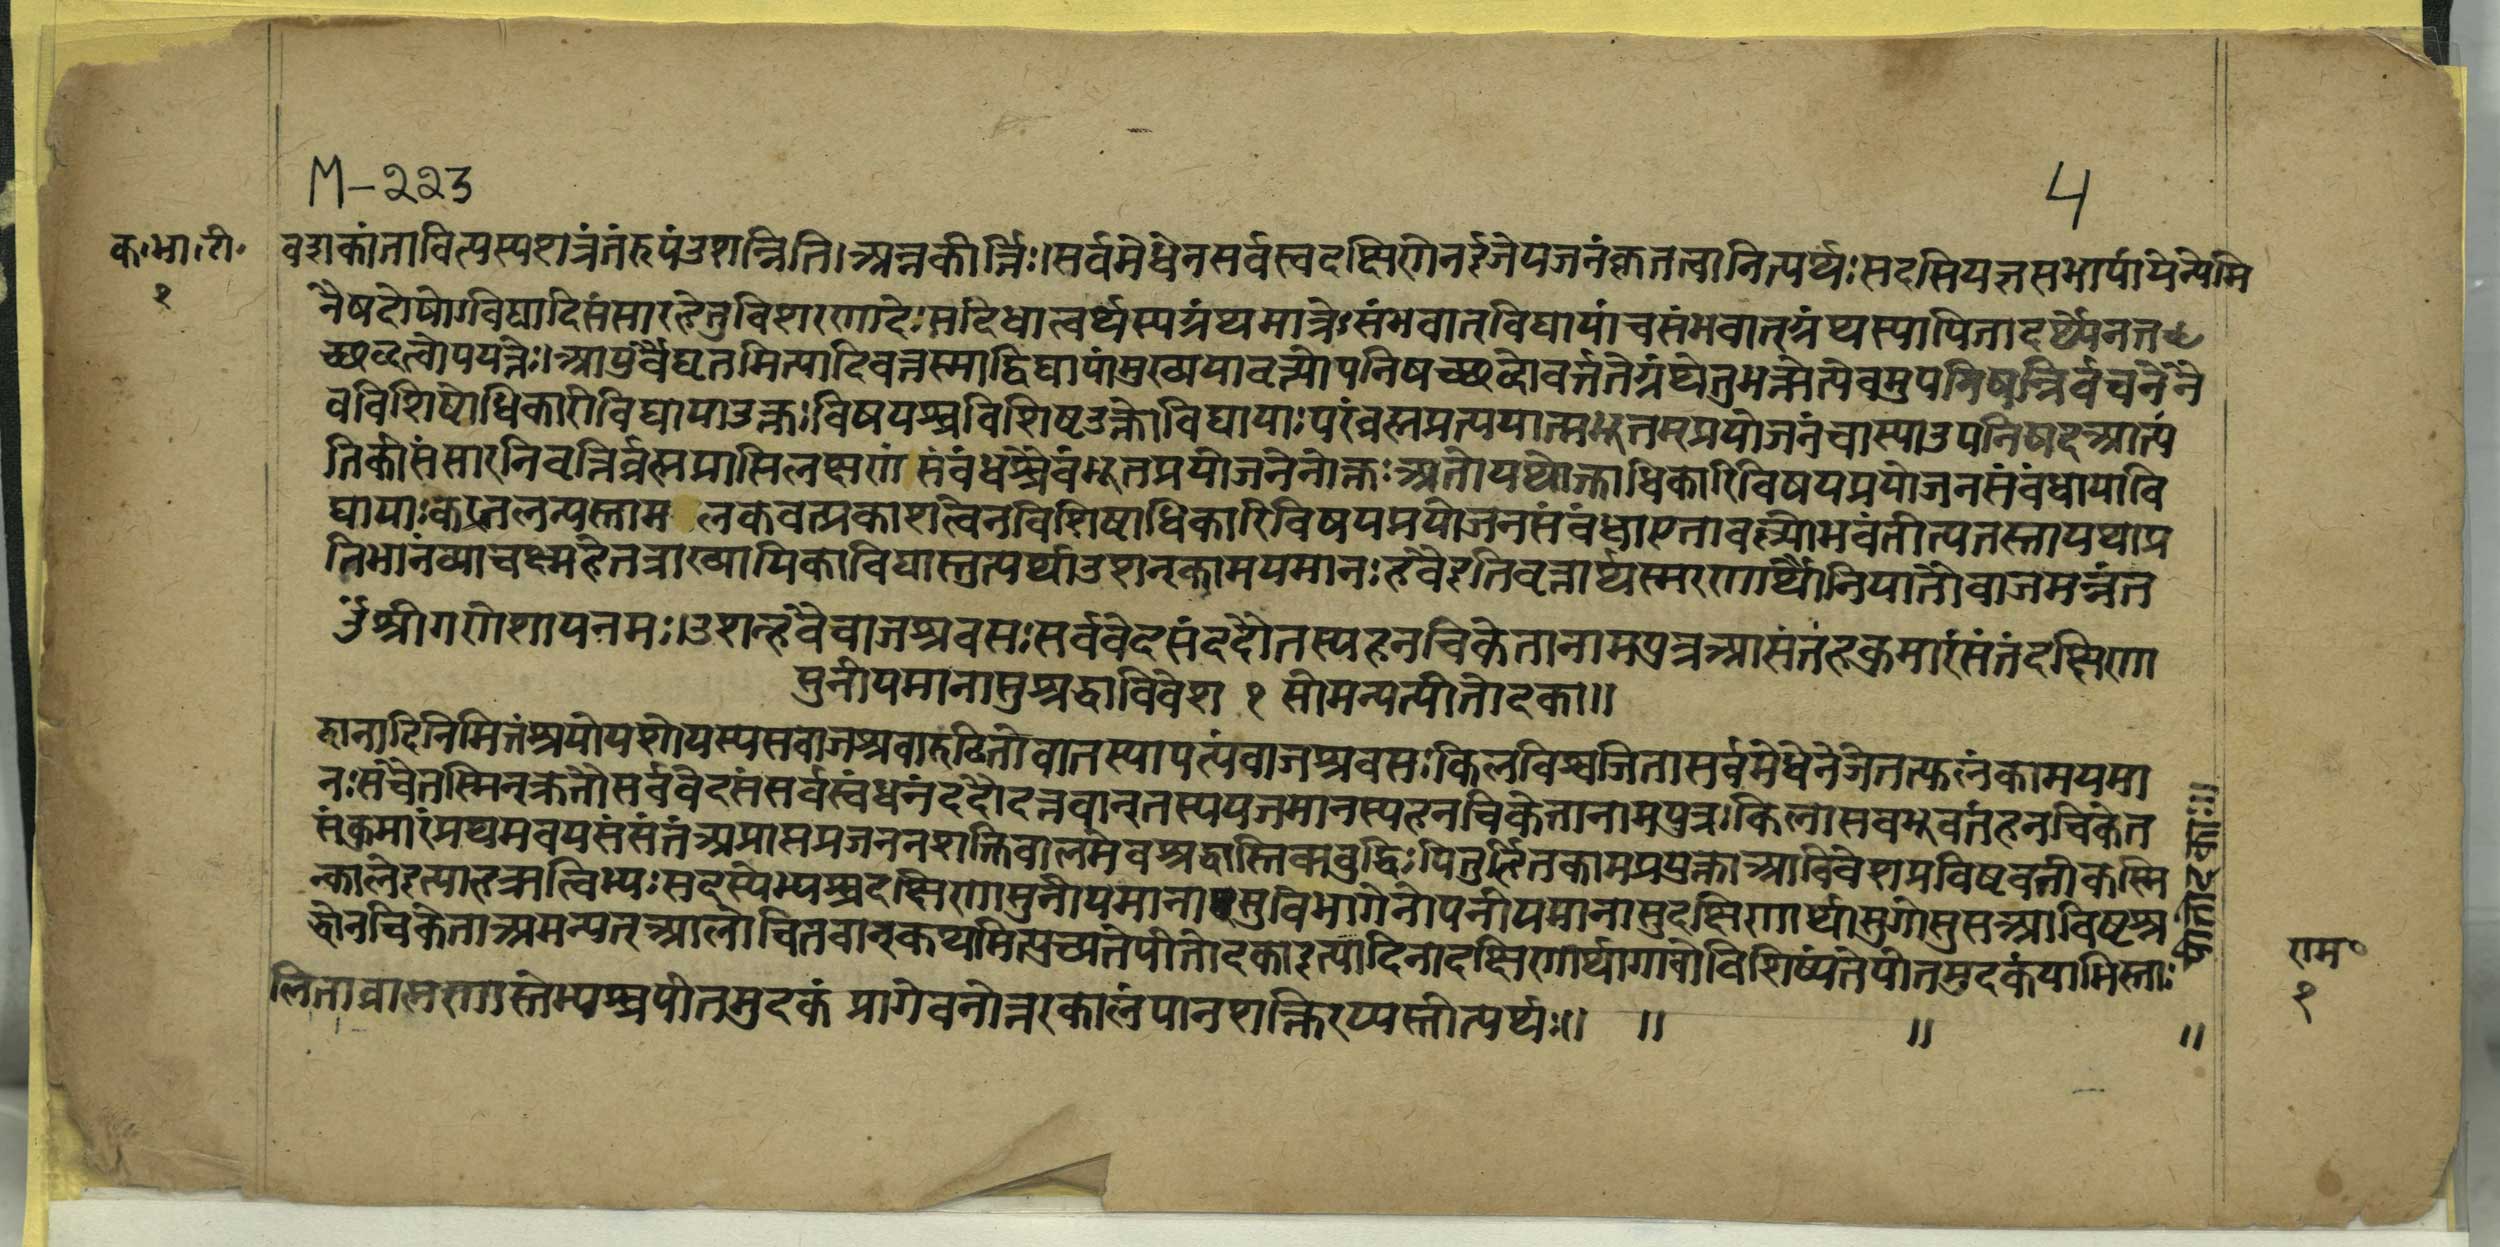 M-२२३
4
क॰भा॰टी॰
१
वदाकांतावित्यस्यशत्रंतंरूपंउशन्निति।अन्नकीर्त्तिः।सर्वमेधेनसर्वस्वदक्षिणेनईजेयजनंकृतवानित्यर्थः सदसियज्ञसभायां
नैषदोषोविद्यादिसंसारहेतुविशरणादेःसदिधात्वर्थस्यग्रंथमात्रेःसंभवात्विद्यायांचसंभवात्ग्रंथस्यापितादर्थ्येनत
च्छब्दत्वोपपत्तेः।आयुर्वैघृतमित्यादिवत्तस्माद्विद्यायांमुख्ययावृत्त्योपनिषच्छब्दोवर्त्ततेग्रंथेतुभक्त्येत्येवमुपनिषन्निर्वचनेनै
वविशिष्टोधिकारीविद्यायाउक्तःविषयश्चविशिष्टउक्तोविद्यायाःपरंब्रह्मप्रत्यगात्मभूतम्प्रयोजनंचास्याउपनिषदआत्यं
तिकीसंसारनिवृत्तिर्ब्रह्मप्राप्तिलक्षणां संबंधश्चैवंभूतप्रयोजनेनोक्तःअतोयथोक्ताधिकारिविषयप्रयोजनसंबंधायावि
द्यायाःकरतलन्यस्ताम लकवत्प्रकाशत्वेनविशिष्टाधिकारिविषयप्रयोजनसंबंधाएतावल्ल्योभवंतीत्यतस्तायथाप्र
तिभानंव्याचक्ष्महेतत्राख्यायिकाविद्यास्तुत्यर्थाउशन्कामयमानःहवैइतिवृत्तार्थस्मरणार्थौनिपातौवाजमन्नंत
ॐश्रीगणेशायनमः।उशन्हवैवाजश्रवसःसर्ववेदसंददौतस्यहनचिकेतानामपुत्रआसतंहकुमारंसंतंदक्षिणा
सुनीयमानासुश्रद्धाविवेश १ सोमन्यत्पीतोदका॥
द्दानादिनिमित्तंश्रवोयशोयस्यसवाजश्रवारूढितोवातस्यापत्यंवाजश्रवसःकिलविश्वजितासर्वमेधेनेजेतत्फलंकामयमा
नःसचैतस्मिन्क्रतौसर्ववेदसंसर्वस्वंधनंददौदत्तवान्तस्ययजमानस्यहनचिकेतानामपुत्रःकिलासबभूवतंहनचिकेत
संकुमारंप्रथमवयसंसंतंअप्राप्तप्रजननशक्तिंबालमेवश्रद्धास्तिक्यबुद्धिःपितुर्हितकामप्रयुक्ताआविवेशप्रविष्टवतीकस्मि
न्कालेइत्याहऋत्विग्भ्यःसदस्येभ्यश्चदक्षिणासुनीयमानासुविभागेनोपनीयमानासुदक्षिणार्थासुगोसुसआविष्टश्र
द्धोनचिकेताअमन्यतआलोचितवान्कथमित्युच्यतेपीतोदकाइत्यादिनादक्षिणार्थागावोविशिष्यंतेपीतमुदकंयाभिस्ताः
लिताब्राह्मणास्तेभ्यश्चपीतमुदकं प्रागेवनोत्तरकालंपानशक्तिरप्यस्तीत्यर्थः॥ ॥ ॥ ॥
राम॰
१